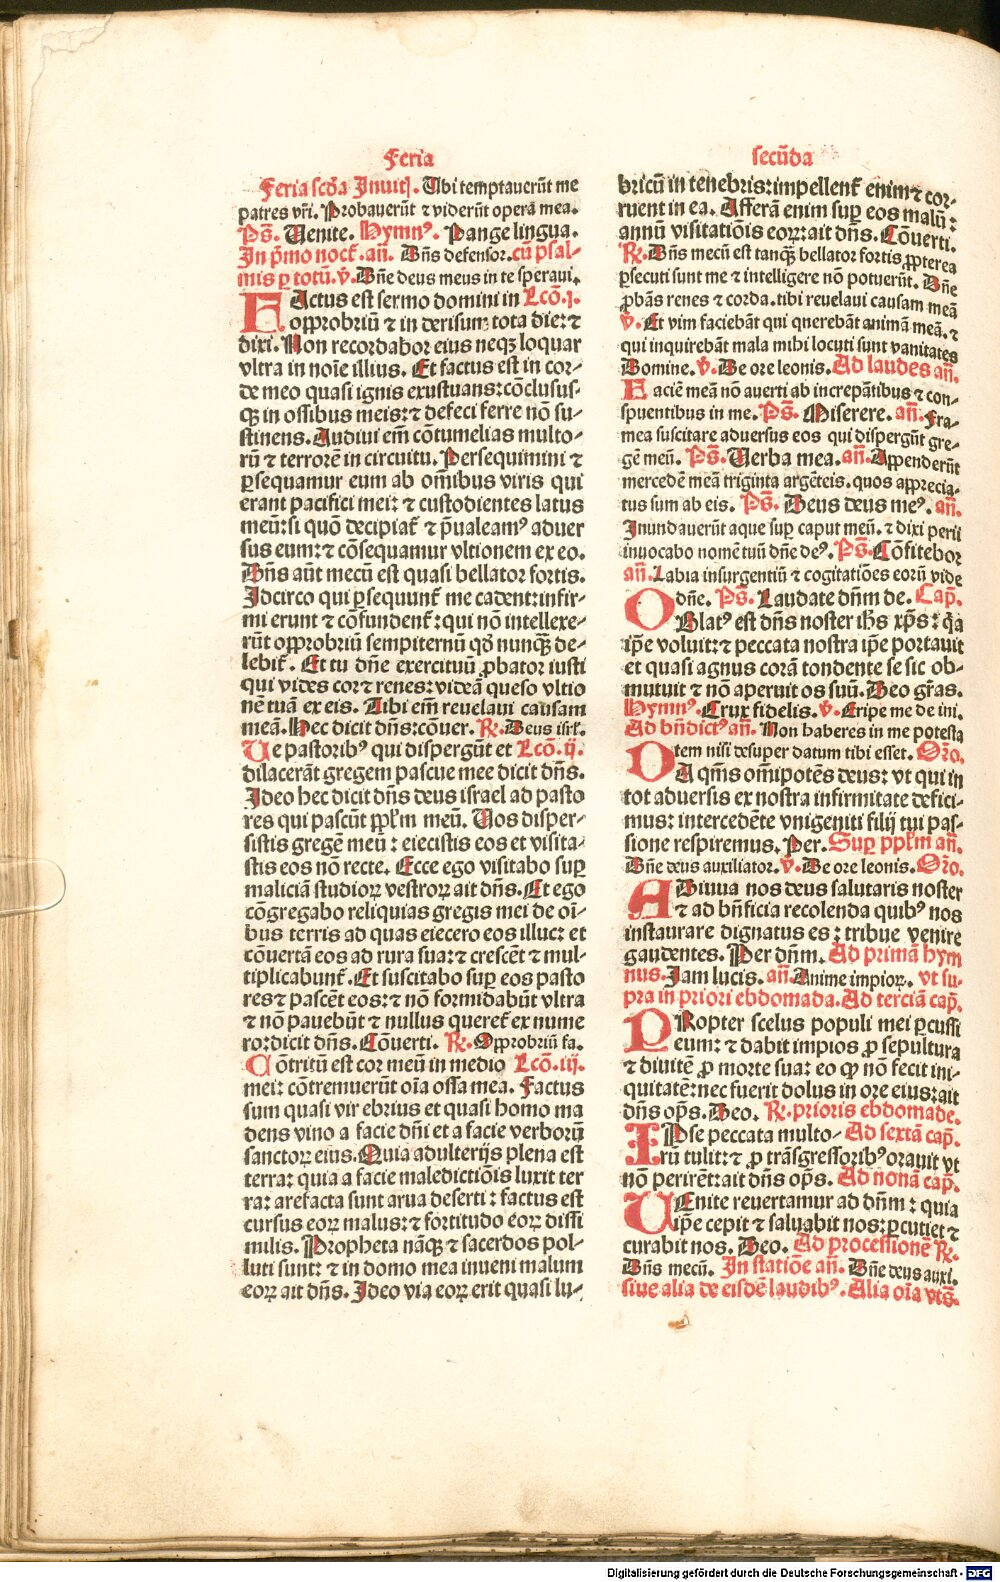 Feria
Feria scďa Inuitʼ. Tibi temptauerūt me
patres vr̄i. Probauerūt ⁊ viderūt opera mea.
Ps̄. Uenite. Hymnꝰ. Pange lingua.
In p̄mo noct̄. an̄. Dn̄s defensor. cū psal-
mis ꝑ totū. v̄. Dn̄e deus meus in te speraui.
FActus est sermo domini in Lcō. j.
opprobriū ⁊ in derisum: tota die: ⁊
dixi. Non recordabor eius neqꝫ loquar
vltra in noīe illius. Et factus est in cor-
de meo quasi ignis exustuans: cōclusus-
qꝫ in ossibus meis: ⁊ defeci ferre nō su-
stinens. Audiui em̄ cōtumelias multo-
rū ⁊ terrorē in circuitu. Persequimini ⁊
ꝑsequamur eum ab om̄ibus viris qui
erant pacifici mei: ⁊ custodientes latus
meū: si quō decipiat̄ ⁊ p̄ualeamꝰ aduer
sus eum: ⁊ cōsequamur vltionem ex eo.
Dn̄s aūt mecū est quasi bellator fortis.
Idcirco qui ꝑsequunt̄ me cadent: infir-
mi erunt ⁊ cōfundent̄: qui nō intellexe-
rūt opprobriū sempiternū qď nunqꝫ de-
lebit̄. Et tu dn̄e exercituū ꝓbator iusti
qui vides cor ⁊ renes: videā queso vltio
nē tuā ex eis. Tibi em̄ reuelaui causam
meā. Hec dicit dn̄s: cōuer. R̄. Deus isrl̄.
Ue pastoribꝰ qui dispergūt et Lcō. ij.
dilacerāt gregem pascue mee dicit dn̄s.
Ideo hec dicit dn̄s deus israel ad pasto
res qui pascūt ppl̄m meū. Uos disper-
sistis gregē meū: eiecistis eos et visita-
stis eos nō recte. Ecce ego visitabo suꝑ
maliciā studioꝝ vestroꝝ ait dn̄s. Et ego
cōgregabo reliquias gregis mei de oī-
bus terris ad quas eiecero eos illuc: et
cōuertā eos ad rura sua: ⁊ crescēt ⁊ mul-
tiplicabunt̄. Et suscitabo suꝑ eos pasto
res ⁊ pascēt eos: ⁊ nō formidabūt vltra
⁊ nō pauebūt ⁊ nullus queret̄ ex nume
ro: dicit dn̄s. Cōuerti. R̄. Opprobriū fa.
Cōtritū est cor meū in medio Lcō. iij.
mei: cōtremuerūt oīa ossa mea. Factus
sum quasi vir ebrius et quasi homo ma
dens vino a facie dn̄i et a facie verborū
sanctoꝝ eius. Quia adulterijs plena est
terra: quia a facie maledictiōis luxit ter
ra: arefacta sunt arua deserti: factus est
cursus eoꝝ malus: ⁊ fortitudo eoꝝ dissi
milis. Propheta nāqꝫ ⁊ sacerdos pol-
luti sunt: ⁊ in domo mea inueni malum
eoꝝ ait dn̄s. Ideo via eoꝝ erit quasi lu-
secūda
bricū in tenebris: impellent̄ enim ⁊ cor-
ruent in ea. Afferā enim suꝑ eos malū:
annū visitatiōis eoꝝ: ait dn̄s. Cōuerti.
R̄. Dn̄s mecū est tanqꝫ bellator fortis ꝓpterea
ꝑsecuti sunt me ⁊ intelligere nō potuerūt. Dn̄e
ꝓbās renes ⁊ corda. tibi reuelaui causam meā
v̄. Et vim faciebāt qui querebāt animā meā. ⁊
qui inquirebāt mala mihi locuti sunt vanitates
Domine. v̄. De ore leonis. Ad laudes an̄.
Faciē meā nō auerti ab increpātibus ⁊ con-
spuentibus in me. Ps̄. Miserere. an̄. Fra-
mea suscitare aduersus eos qui dispergūt gre-
gē meū. Ps̄. Uerba mea. an̄. Appenderūt
mercedē meā triginta argēteis. quos apprecia-
tus sum ab eis. Ps̄. Deus deus meꝰ. an̄.
Inundauerūt aque suꝑ caput meū. ⁊ dixi perii
inuocabo nomē tuū dn̄e deꝰ. Ps̄. Cōfitebor
an̄. Labia insurgentiū ⁊ cogitatiōes eorū vide
dn̄e. Ps̄. Laudate dn̄m de. Cap̄.
OBlatꝰ est dn̄s noster ih̄s xp̄s: q̄a
ip̄e voluit: ⁊ peccata nostra ip̄e portauit
et quasi agnus corā tondente se sic ob-
mutuit ⁊ nō aperuit os suū. Deo gr̄as.
Hymnꝰ. Crux fidelis. v̄. Eripe me de ini.
Ad bn̄dictꝰ an̄. Non haberes in me potesta
tem nisi desuper datum tibi esset. Or̄o.
DA qm̄s om̄ipotēs deus: vt qui in
tot aduersis ex nostra infirmitate defici-
mus: intercedēte vnigeniti filij tui pas-
sione respiremus. Per. Suꝑ ppl̄m an̄.
Dn̄e deus auxiliator. v̄. De ore leonis. Or̄o.
ADiuua nos deus salutaris noster
⁊ ad bn̄ficia recolenda quibꝰ nos
instaurare dignatus es: tribue venire
gaudentes. Per dn̄m. Ad primā hym
nus. Iam lucis. an̄. Anime impioꝝ. vt su-
pra in priori ebdomada. Ad terciā cap̄.
PRopter scelus populi mei ꝑcussi
eum: ⁊ dabit impios ꝓ sepultura
⁊ diuitē ꝓ morte sua: eo ꝙ nō fecit ini-
quitatē: nec fuerit dolus in ore eius: ait
dn̄s op̄s. Deo. R̄. prioris ebdomade.
IPse peccata multo- Ad sextā cap̄.
rū tulit: ⁊ ꝓ trāsgressoribꝰ orauit vt
nō perirēt: ait dn̄s op̄s. Ad nonā cap̄.
UEnite reuertamur ad dn̄m: quia
ip̄e cepit ⁊ saluabit nos: ꝑcutiet ⁊
curabit nos. Deo. Ad processionē R̄.
Dn̄s mecū. In statiōe an̄. Dn̄e deus auxi.
siue alia de eisdē laudibꝰ. Alia oīa vts̄.
Digitalisierung gefördert durch die Deutsche Forschungsgemeinschaft - DFG